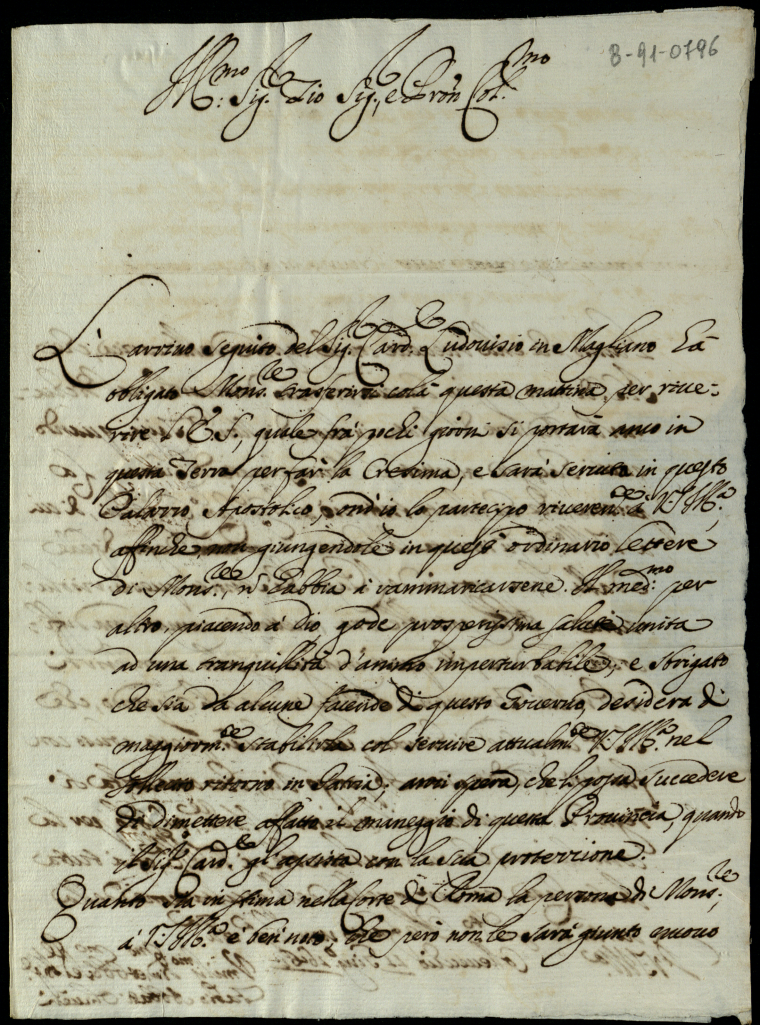 8-91-0796
Ill.mo Sig. Zio Sig., e Pron Col.mo
L'arrivo seguito del Sig. Card.le Ludovisio in Magliano hà
obligato Mons.re trasferirsi colà questa mattina per rive-
rire S. E. S., quale frà pochi giorni si portarà anco in
questa Terra per far la Cresima, e sarà servita in questo
Palazzo Apostolico, ond'io lo partecipo riverent.e à V. S. Ill.ma,
affinche non giungendole in quest' ordinario lettere
di Mons.re, n' habbia à rammaricarsene. Il med.mo per
altro, piacendo à Dio gode prosperissima salute unita
ad una tranquillità d'animo imperturbabile, e sbrigato
che sia da alcune facende di questo Governo, desidera di
maggiorm.te stabilirla col servire attualm.te V. S. Ill.ma nel
ritorno in Patria, anzi spera, che li possa succedere
di dimettere affatto il maneggio di questa Provincia, quando
il Sig.r Card.le gl'assista con la sua protezzione.
Quanto sia in stima nella Corte di Roma la persona di Mons.re,
à V. S. Ill.ma è ben noto, che però non le sarà giunto nuovo